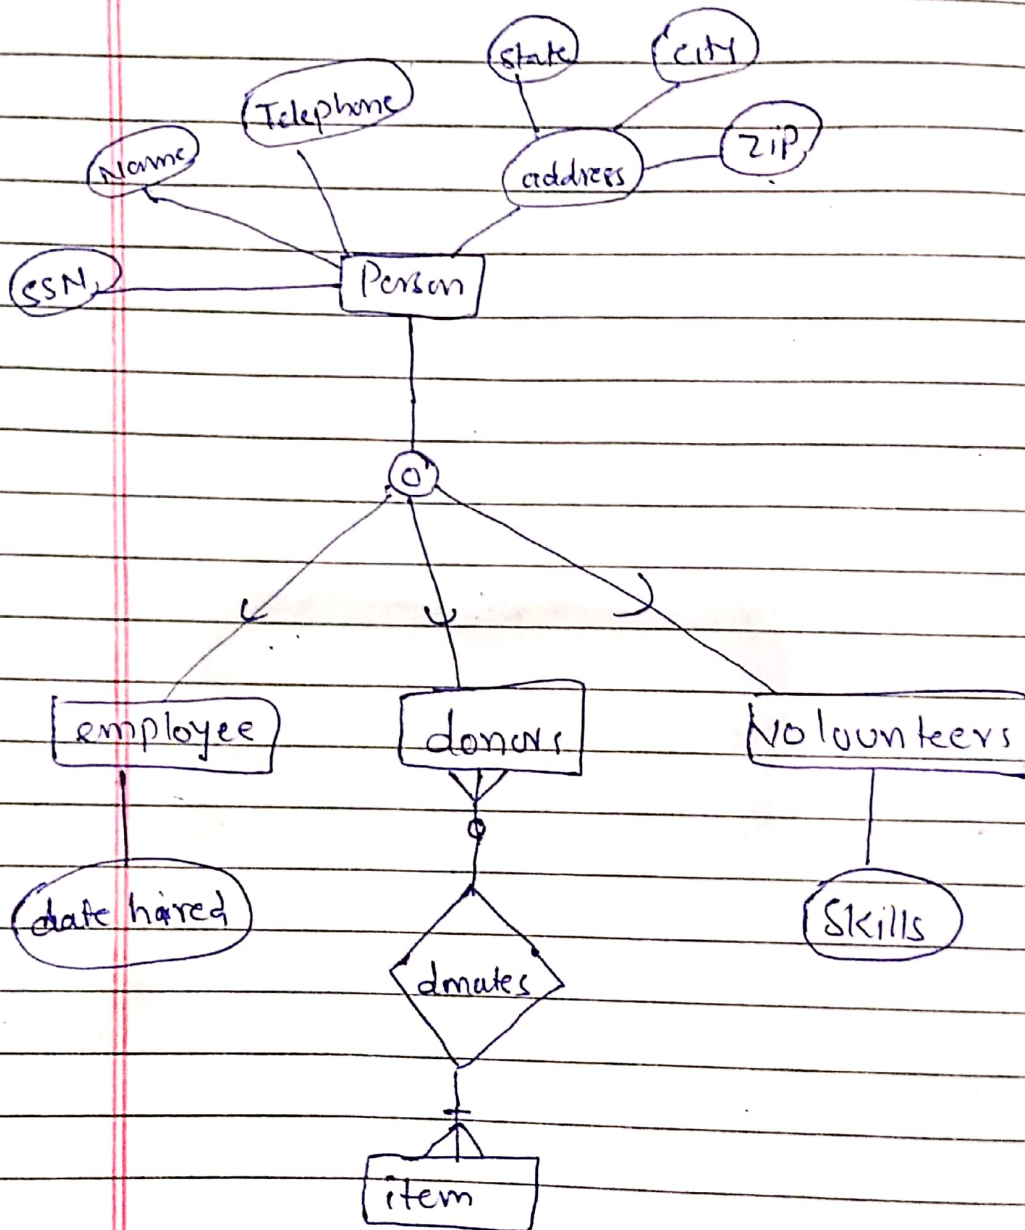 State
City
Telephone
Name
address
ZiP
SSN
Person
O
employee
donors
Volounteers
date hired
Skills
dmates
item